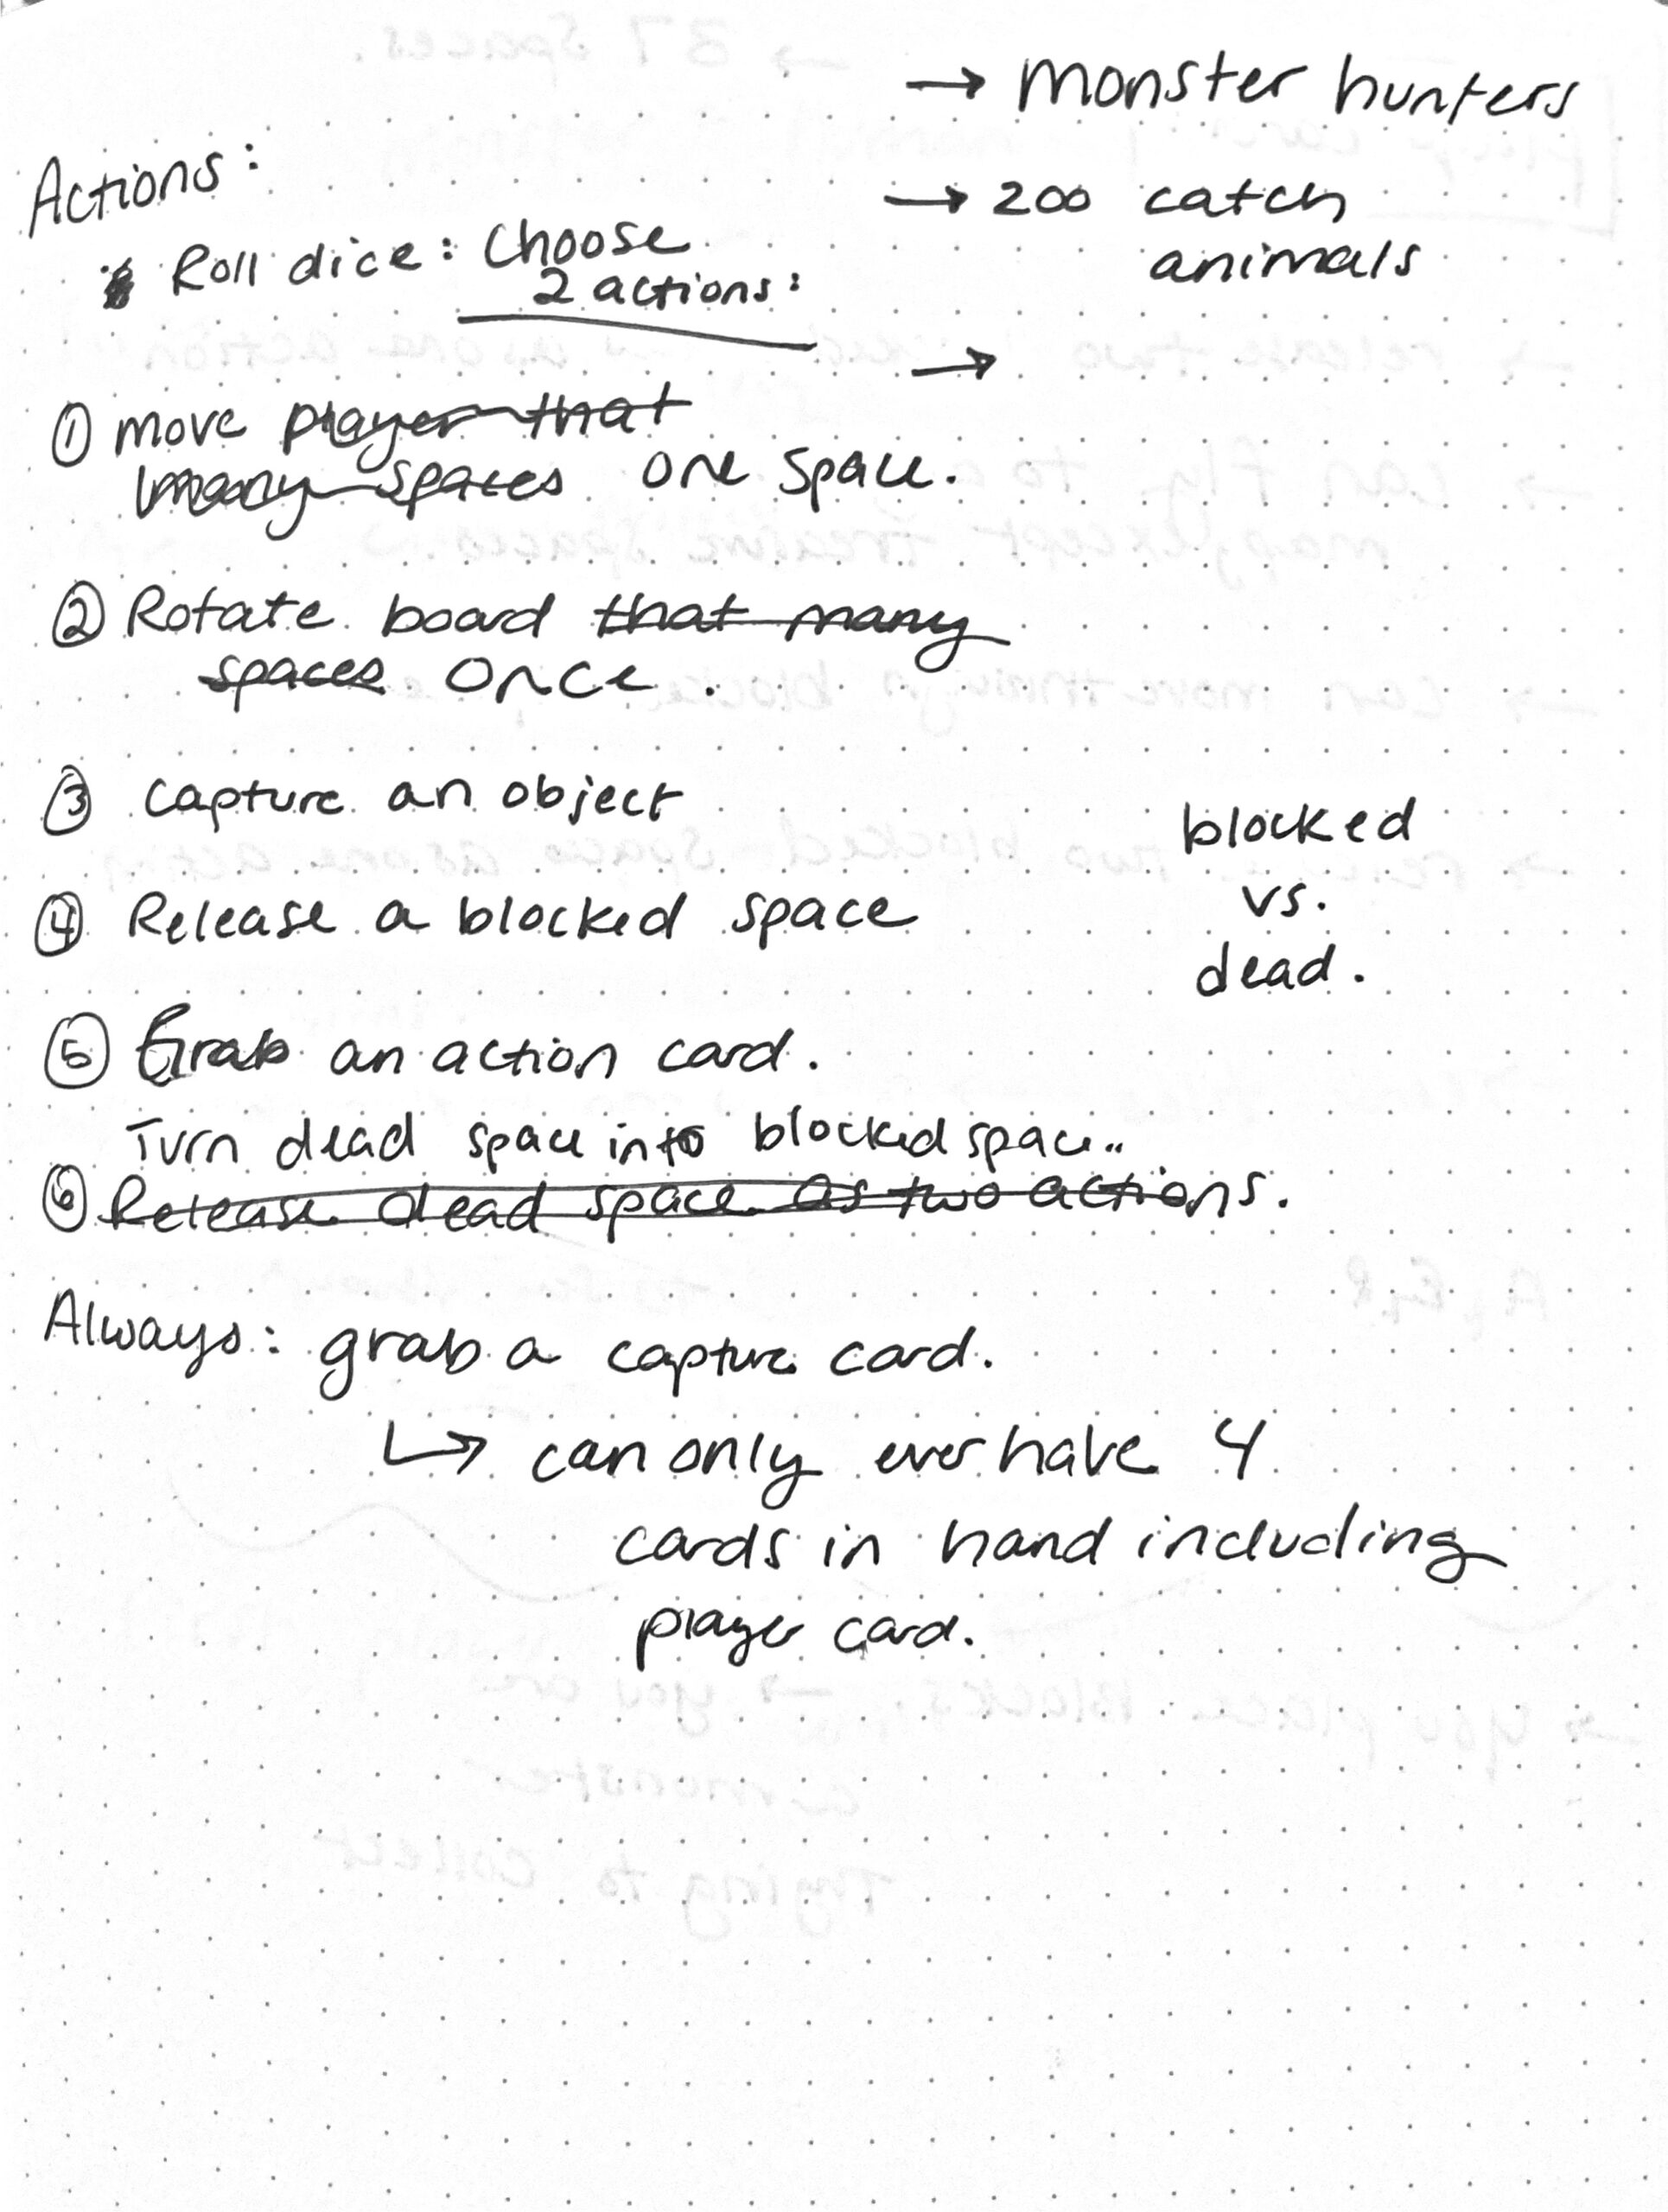 → monster hunters
→ 200 catch
animals
→
Actions:
Roll dice: Choose
2 actions:
① move player that
many spaces one space.
② Rotate board that many
spaces once.
③ capture an object
④ Release a blocked space
blocked
vs.
dead.
⑤ Grab an action card.
Turn dead space into blocked space..
⑥ Release dead space as two actions.
Always: grab a capture card.
↳ can only ever have 4
cards in hand including
player card.